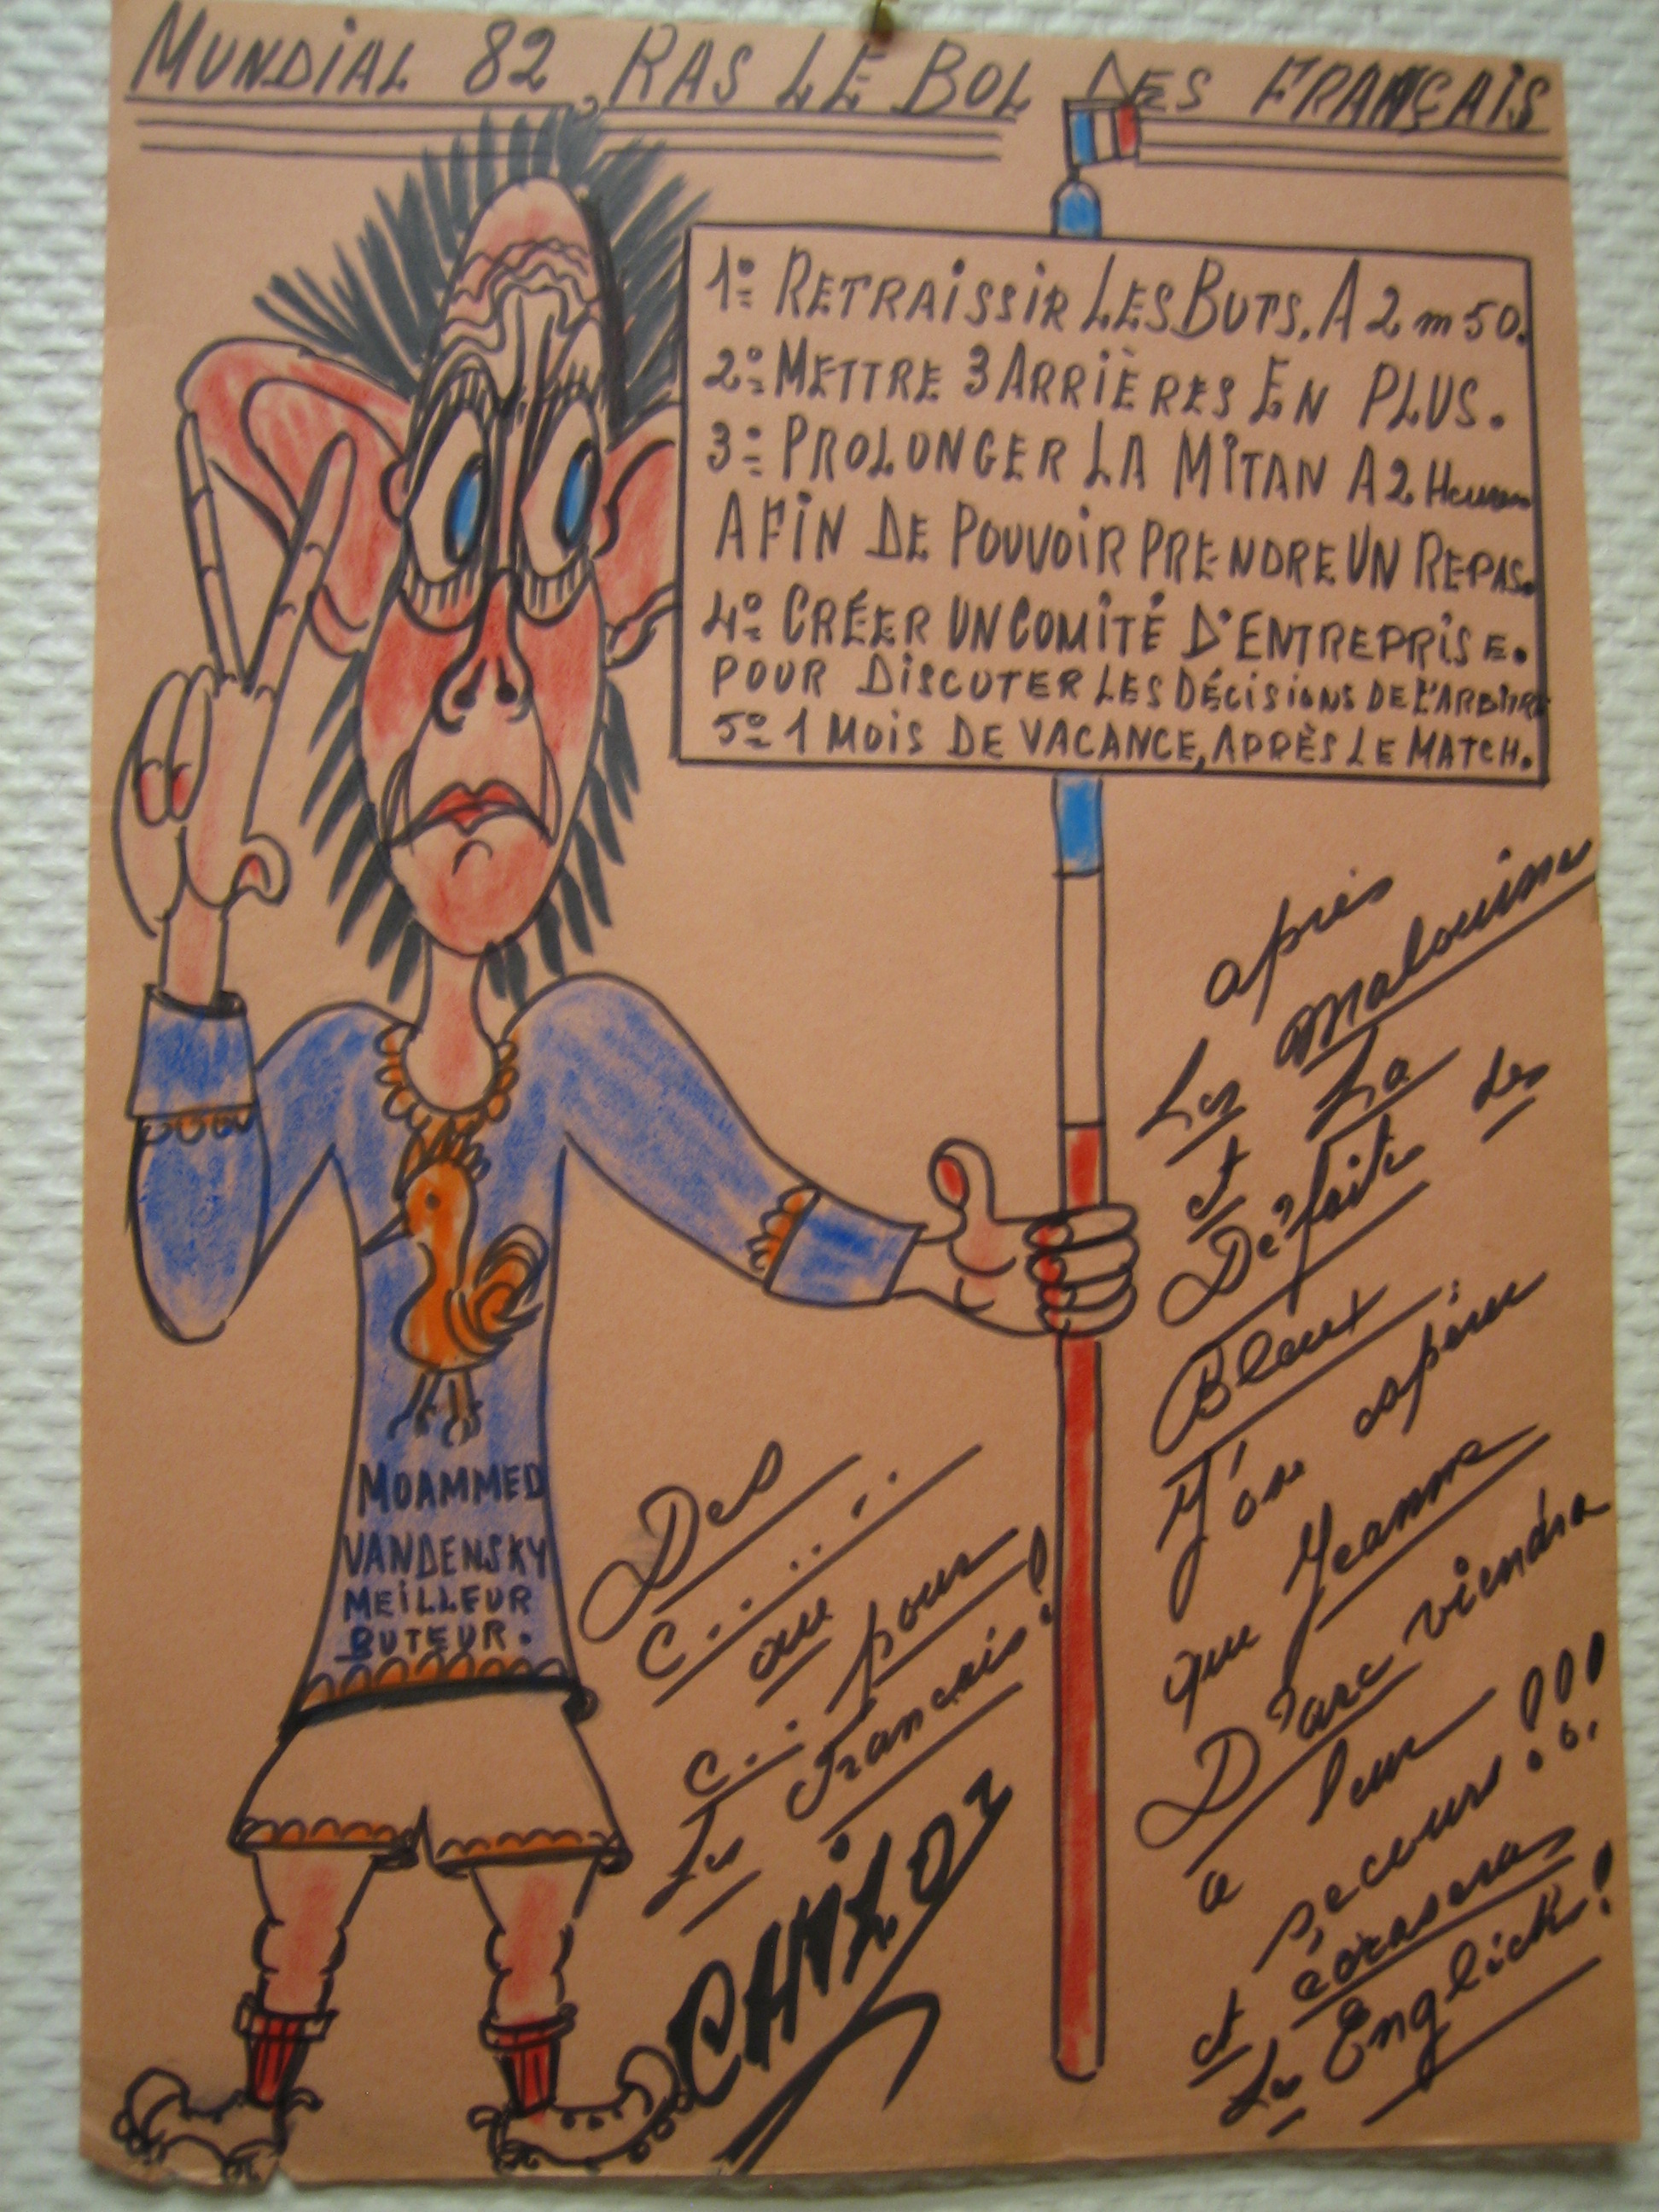 MUNDIAL 82, RAS LE BOL DES FRANÇAIS
1º RETRAISSIR LES BUTS. A 2 m 50.
2º METTRE 3 ARRIÈRES EN PLUS.
3º PROLONGER LA MITAN A 2 Heures
AFIN DE POUVOIR PRENDRE UN REPAS.
4º CRÉER UN COMITÉ D'ENTREPRISE.
POUR DISCUTER LES DÉCISIONS DE L'ARBITRE
5º 1 MOIS DE VACANCE, APRÈS LE MATCH.
après
Les Malouines
et La
Défaite des
Bleux
J'ose espérer
que Jeanne
D'arc viendra
a leur
secours!!!
et écrasera
Les Englich!
MOAMMED
VANDENSKY
MEILLEUR
BUTEUR.
Des
C.......
au
C.. pour
Les Francais!